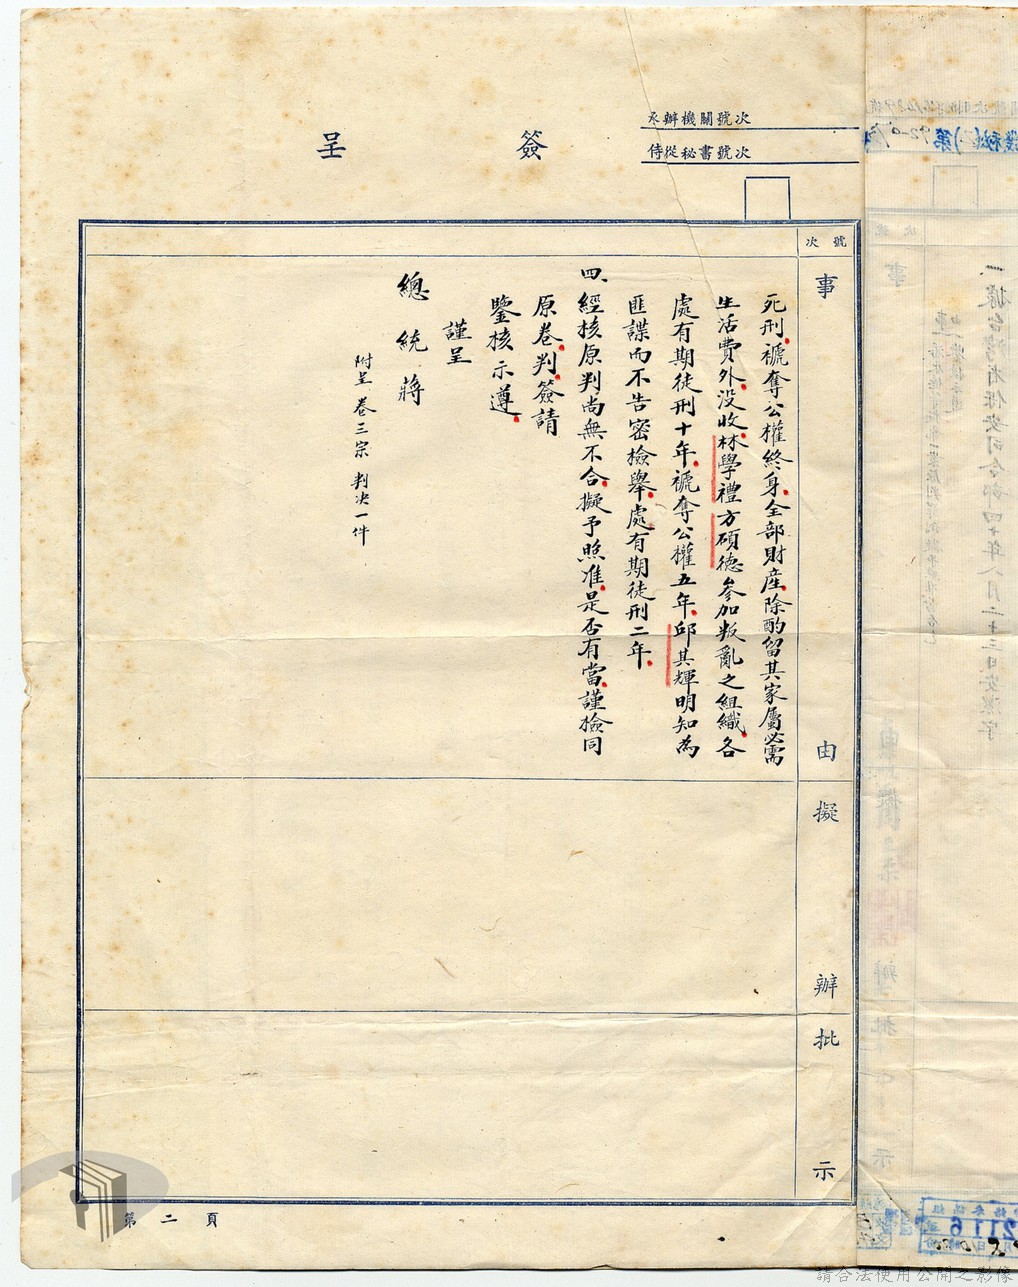 承辦機關號次
侍從秘書號次
簽呈
號次
事由
擬辦
批示
死刑褫奪公權終身全部財產除酌留其家屬必需
生活費外沒收林學禮方碩德參加叛亂之組織各
處有期徒刑十年褫奪公權五年邱其輝明知為
匪諜而不告密檢舉處有期徒刑二年
四、經核原判尚無不合擬予照准是否有當謹檢同
原卷判簽請
鑒核示遵
謹呈
總統蔣
附呈卷三宗判决一件
第二頁
一據台灣省保安司令部四十年八月二十三日安潔字
2116
請合法使用公開之影像